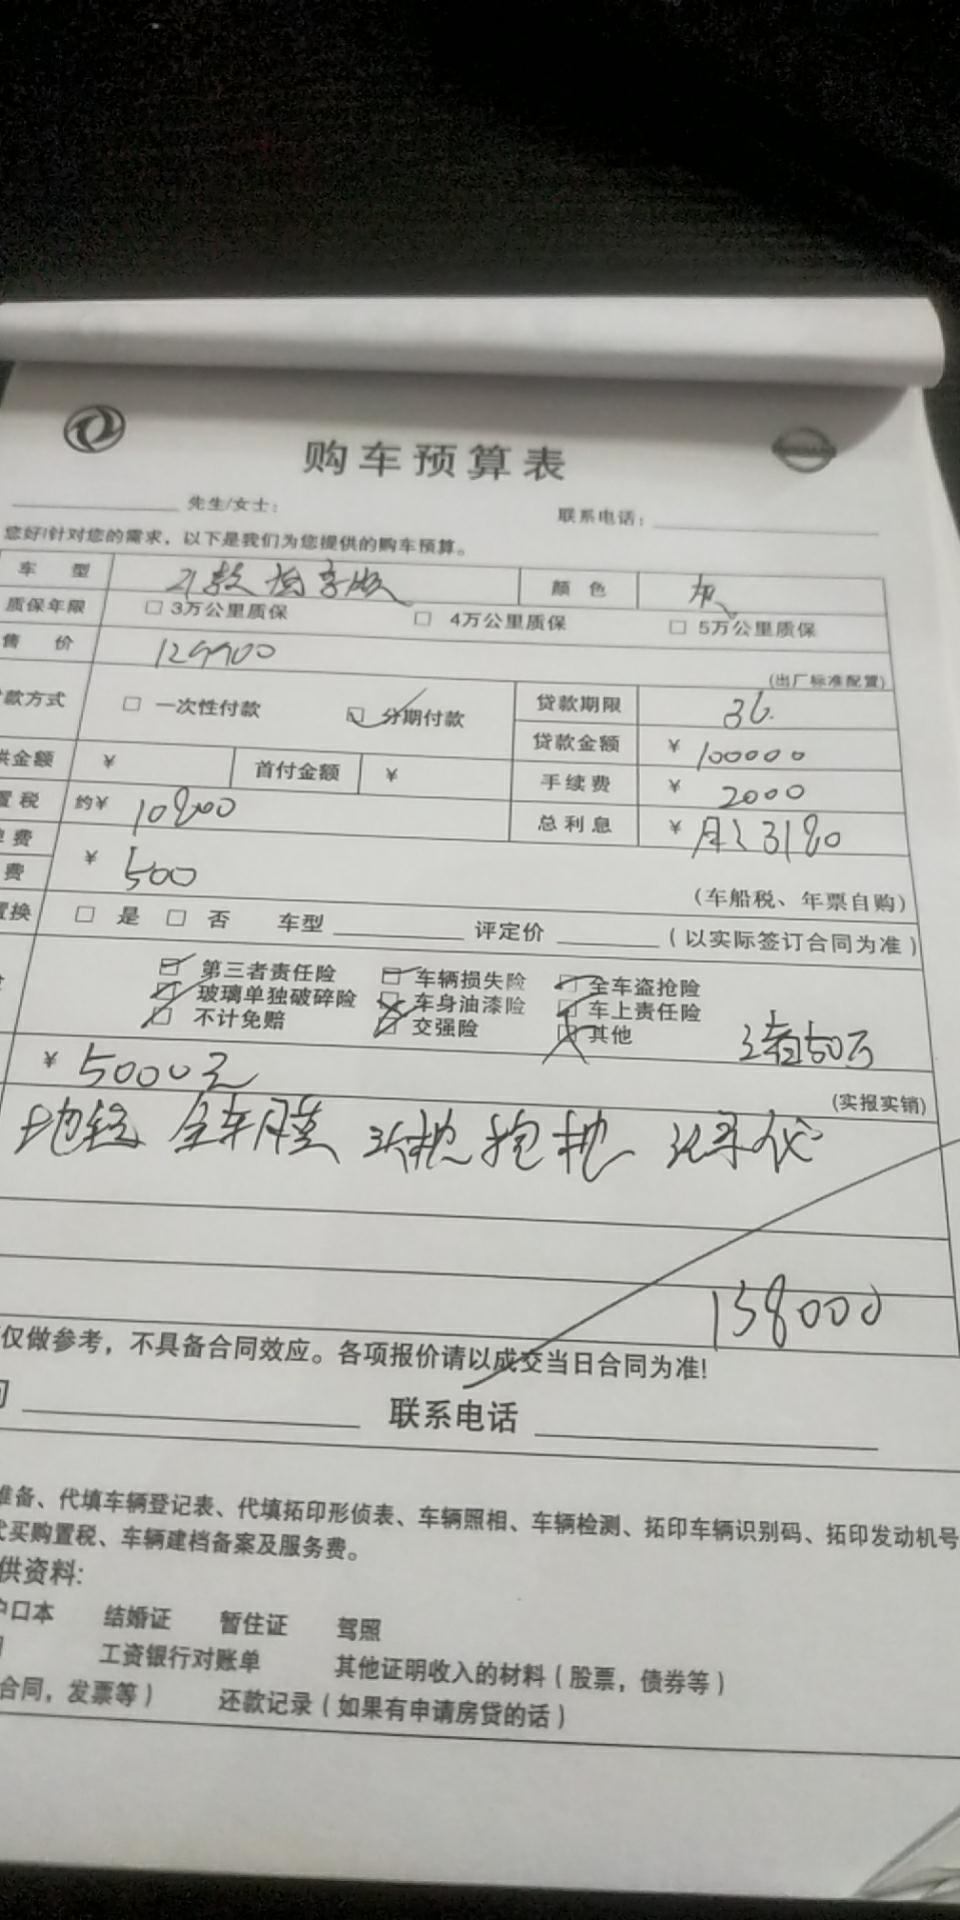 购车预算表
先生/女士： 联系电话：
您好!针对您的需求，以下是我们为您提供的购车预算。
车 型 21款 颜 色 灰
质保年限 □ 3万公里质保 □ 4万公里质保 □ 5万公里质保
售 价 129900 (出厂标准配置)
款方式 □ 一次性付款 ☑ 分期付款 贷款期限 36.
贷款金额 ¥ 100000
金额 ¥ 首付金额 ¥ 手续费 ¥ 2000
置税 约¥ 10800 总利息 ¥ 月:3180
费
费 ¥ 500 (车船税、年票自购)
置换 □ 是 □ 否 车型 评定价 (以实际签订合同为准)
第三者责任险 车辆损失险 全车盗抢险
玻璃单独破碎险 车身油漆险 车上责任险
不计免赔 交强险 其他 三者50万
¥ 5000元 (实报实销)
全车膜 头枕 抱枕 记录仪
138000
仅做参考，不具备合同效应。各项报价请以成交当日合同为准!
联系电话
准备、代填车辆登记表、代填拓印形侦表、车辆照相、车辆检测、拓印车辆识别码、拓印发动机号
买购置税、车辆建档备案及服务费。
供资料:
户口本 结婚证 暂住证 驾照
工资银行对账单 其他证明收入的材料（股票，债券等）
合同，发票等） 还款记录（如果有申请房贷的话）